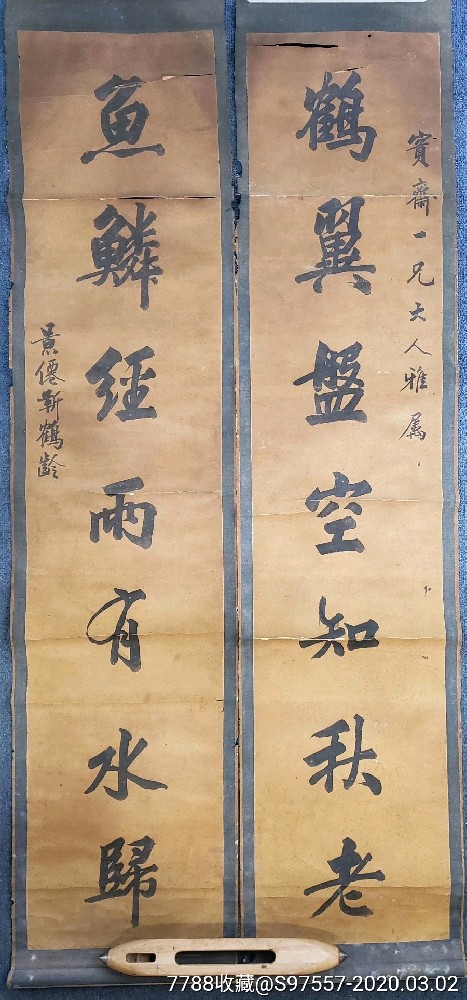 寳齋一兄大人雅属
鶴翼盤空知秋老
魚鱗經雨有水歸
景僊靳鶴齡
7788收藏@S97557-2020.03.02